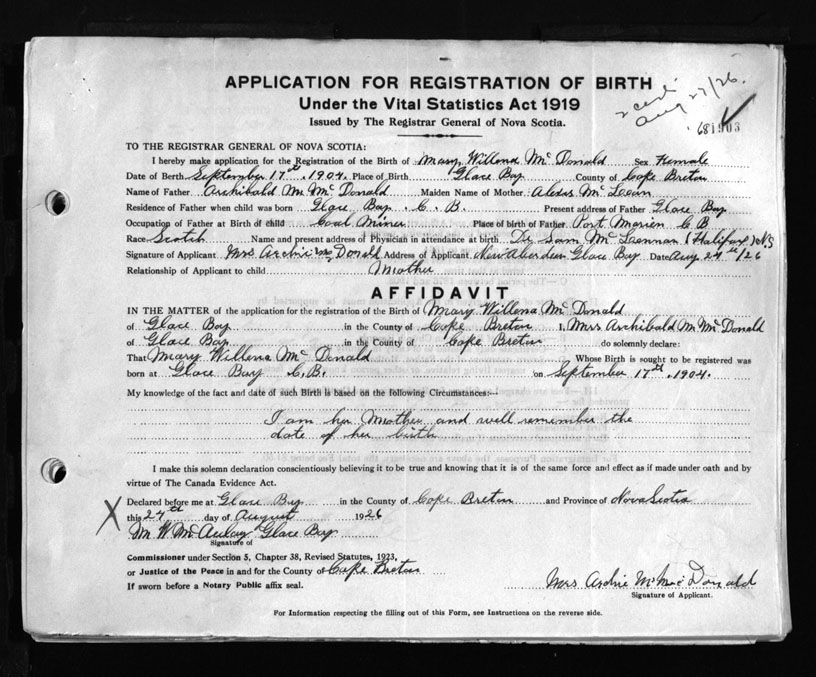 APPLICATION FOR REGISTRATION OF BIRTH
Under the Vital Statistics Act 1919
Issued by The Registrar General of Nova Scotia.
Aug 27/26.
681903
TO THE REGISTRAR GENERAL OF NOVA SCOTIA:
I hereby make application for the Registration of the Birth of Mary Willena McDonald Sex Female
Date of Birth September 17th, 1904. Place of Birth Glace Bay County of Cape Breton
Name of Father Archibald M. McDonald Maiden Name of Mother Alexis McLean
Residence of Father when child was born Glace Bay. C. B. Present address of Father Glace Bay
Occupation of Father at Birth of child Coal Miner Place of birth of Father Port Morien C B
Race Scotch Name and present address of Physician in attendance at birth Dr Sam McLennan (Halifax) N.S
Signature of Applicant Mrs Archie McDonald Address of Applicant New Aberdeen Glace Bay Date Aug 24th/26
Relationship of Applicant to child Mother
AFFIDAVIT
IN THE MATTER of the application for the registration of the Birth of Mary Willena McDonald
of Glace Bay in the County of Cape Breton I, Mrs Archibald M. McDonald
of Glace Bay in the County of Cape Breton do solemnly declare:
That Mary Willena McDonald Whose Birth is sought to be registered was
born at Glace Bay C.B. on September 17th, 1904.
My knowledge of the fact and date of such Birth is based on the following Circumstances:—
I am her Mother and well remember the
date of her birth
I make this solemn declaration conscientiously believing it to be true and knowing that it is of the same force and effect as if made under oath and by
virtue of The Canada Evidence Act.
Declared before me at Glace Bay in the County of Cape Breton and Province of Nova Scotia
X this 24th day of August 1926
M. W. McAulay Glace Bay
Signature of
Commissioner under Section 5, Chapter 38, Revised Statutes, 1923,
or Justice of the Peace in and for the County of Cape Breton
If sworn before a Notary Public affix seal.
Mrs Archie M McDonald
Signature of Applicant.
For Information respecting the filling out of this Form, see Instructions on the reverse side.